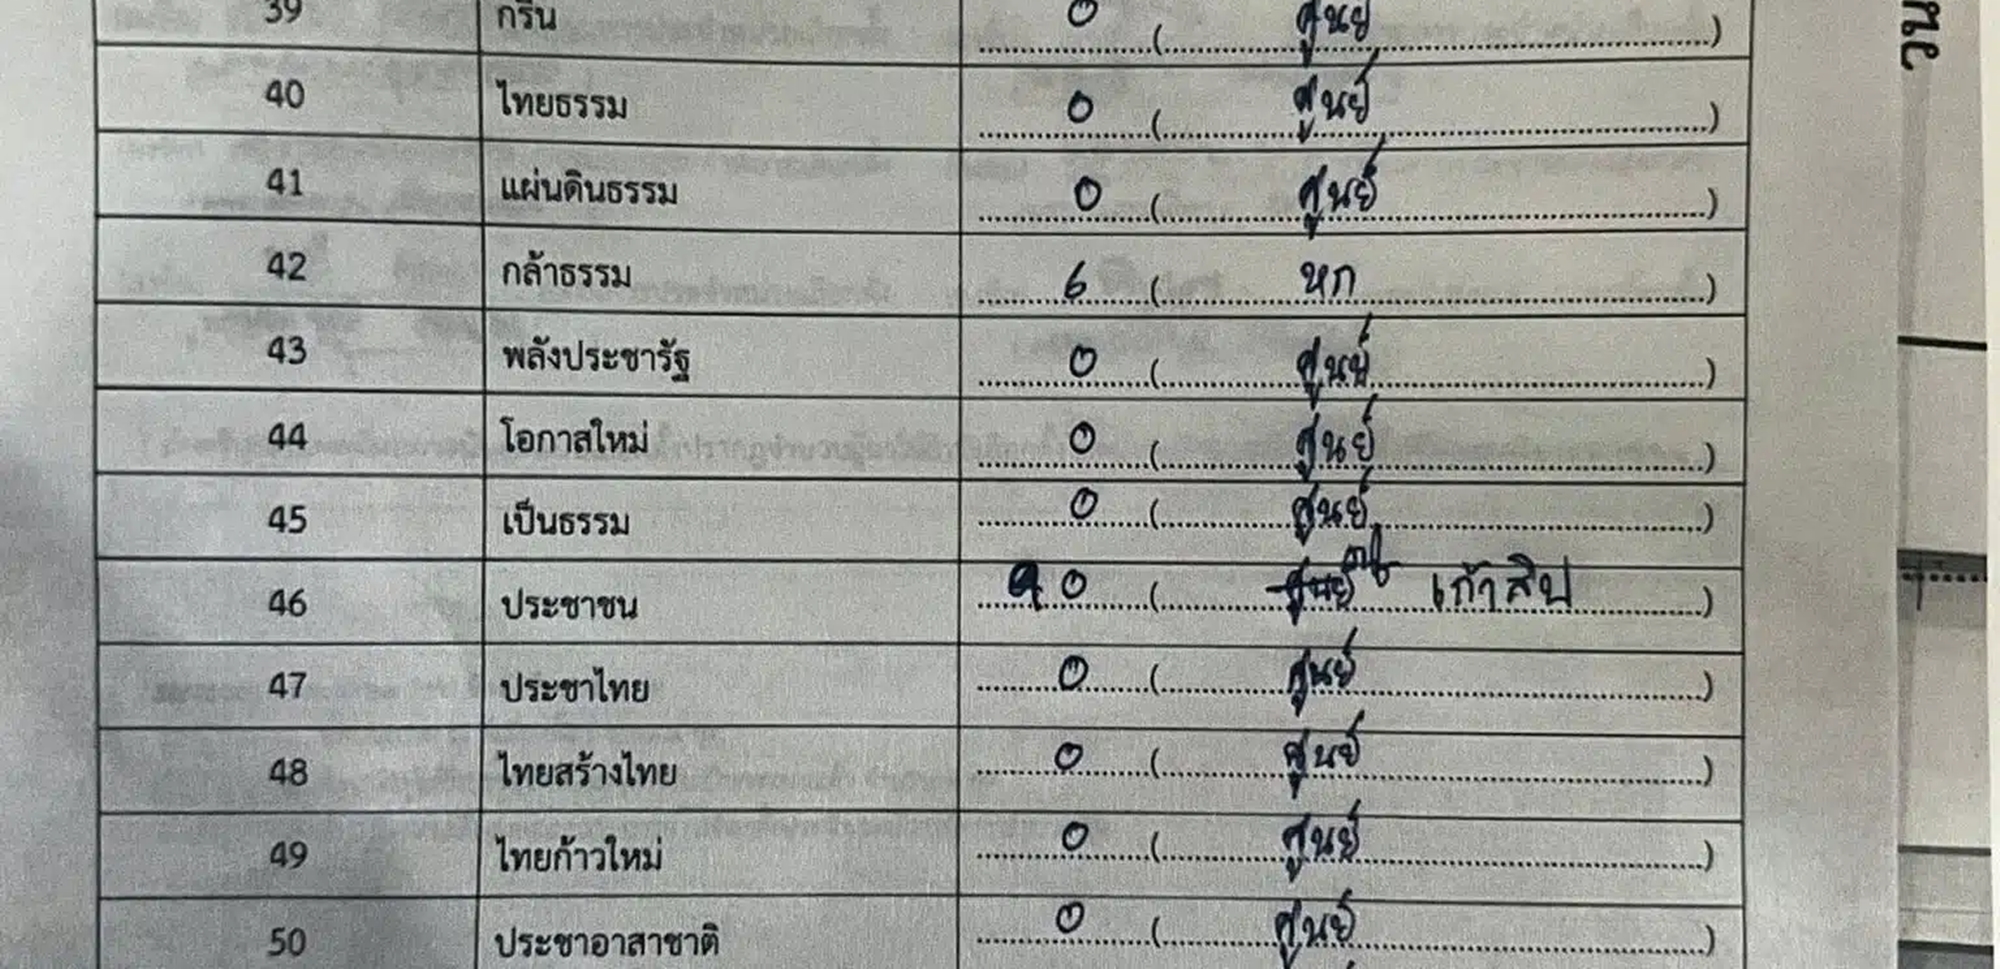 39 กรีน 0 (ศูนย์)
40 ไทยธรรม 0 (ศูนย์)
41 แผ่นดินธรรม 0 (ศูนย์)
42 กล้าธรรม 6 (หก)
43 พลังประชารัฐ 0 (ศูนย์)
44 โอกาสใหม่ 0 (ศูนย์)
45 เป็นธรรม 0 (ศูนย์)
46 ประชาชน 90 (ศูนย์ เก้าสิบ)
47 ประชาไทย 0 (ศูนย์)
48 ไทยสร้างไทย 0 (ศูนย์)
49 ไทยก้าวใหม่ 0 (ศูนย์)
50 ประชาอาสาชาติ 0 (ศูนย์)